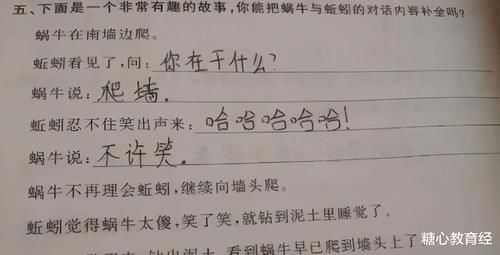 五、下面是一个非常有趣的故事,你能把蜗牛与蚯蚓的对话内容补全吗?
蜗牛在南墙边爬。
蚯蚓看见了,问:你在干什么?
蜗牛说:爬墙.
蚯蚓忍不住笑出声来:哈哈哈哈哈!
蜗牛说:不许笑.
蜗牛不再理会蚯蚓,继续向墙头爬。
蚯蚓觉得蜗牛太傻,笑了笑,就钻到泥土里睡觉了。
钻出泥土,看到蜗牛早已爬到墙头上了
糖心教育经